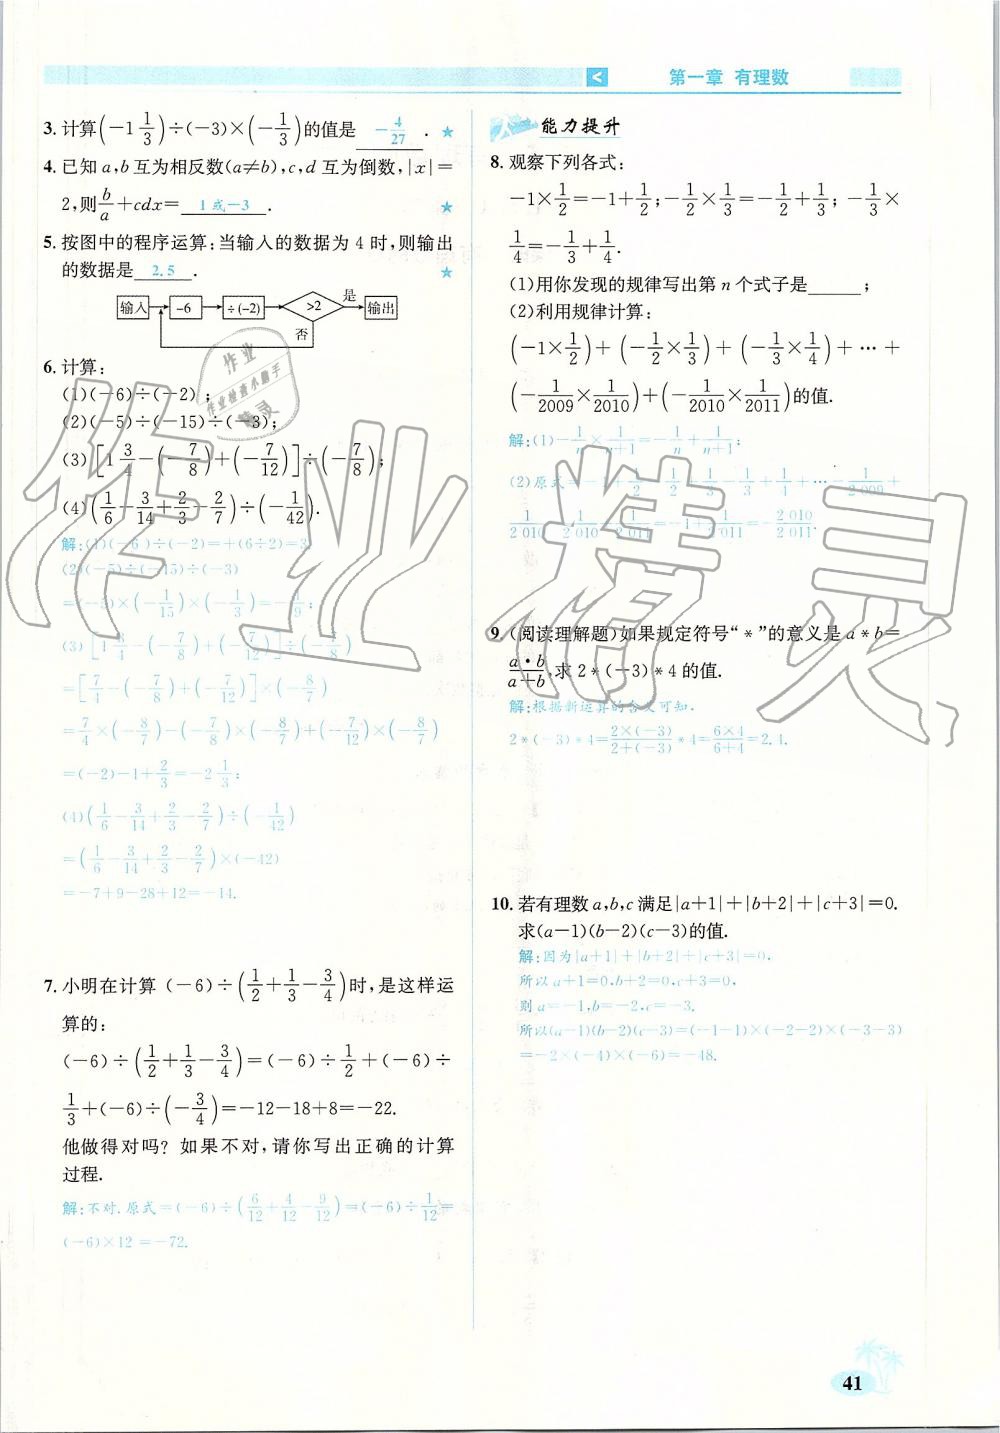 第一章 有理数
3. 计算(-1 1/3)÷(-3)×(-1/3)的值是 -4/27 . ★
4. 已知 a,b 互为相反数(a≠b),c,d 互为倒数,|x|=
2,则b/a+cdx= 1或-3 . ★
5. 按图中的程序运算:当输入的数据为 4 时,则输出
的数据是 2.5 . ★
输入 -6 ÷(-2) >2 是 输出
否
6. 计算:
(1)(-6)÷(-2);
(2)(-5)÷(-15)÷(-3);
(3)[1 3/4-(-7/8)+(-7/12)]÷(-7/8);
(4)(1/6-3/14+2/3-2/7)÷(-1/42).
解:(1)(-6)÷(-2)=+(6÷2)=3;
(2)(-5)÷(-15)÷(-3)
=(-5)×(-1/15)×(-1/3)=-1/9;
(3)[1 3/4-(-7/8)+(-7/12)]÷(-7/8)
=[7/4-(-7/8)+(-7/12)]×(-8/7)
=7/4×(-8/7)-(-7/8)×(-8/7)+(-7/12)×(-8/7)
=(-2)-1+2/3=-2 1/3;
(4)(1/6-3/14+2/3-2/7)÷(-1/42)
=(1/6-3/14+2/3-2/7)×(-42)
=-7+9-28+12=-14.
7. 小明在计算(-6)÷(1/2+1/3-3/4)时,是这样运
算的:
(-6)÷(1/2+1/3-3/4)=(-6)÷1/2+(-6)÷
1/3+(-6)÷(-3/4)=-12-18+8=-22.
他做得对吗?如果不对,请你写出正确的计算
过程.
解:不对.原式=(-6)÷(6/12+4/12-9/12)=(-6)÷1/12=
(-6)×12=-72.
能力提升
8. 观察下列各式:
-1×1/2=-1+1/2;-1/2×1/3=-1/2+1/3;-1/3×
1/4=-1/3+1/4.
(1)用你发现的规律写出第 n 个式子是______;
(2)利用规律计算:
(-1×1/2)+(-1/2×1/3)+(-1/3×1/4)+…+
(-1/2009×1/2010)+(-1/2010×1/2011)的值.
解:(1)-1/n×1/(n+1)=-1/n+1/(n+1);
(2)原式=-1+1/2-1/2+1/3-1/3+1/4+…-1/2 009+
1/2 010-1/2 010+1/2 011=-1+1/2 011=-2 010/2 011.
9. (阅读理解题)如果规定符号“*”的意义是 a*b=
a·b/a+b,求 2*(-3)*4 的值.
解:根据新运算的含义可知.
2*(-3)*4=2×(-3)/2+(-3)*4=6×4/6+4=2.4.
10. 若有理数 a,b,c 满足|a+1|+|b+2|+|c+3|=0.
求(a-1)(b-2)(c-3)的值.
解:因为|a+1|+|b+2|+|c+3|=0,
所以 a+1=0,b+2=0,c+3=0,
则 a=-1,b=-2,c=-3.
所以(a-1)(b-2)(c-3)=(-1-1)×(-2-2)×(-3-3)
=-2×(-4)×(-6)=-48.
作业
作业检查小助手
精灵
作业精灵
41